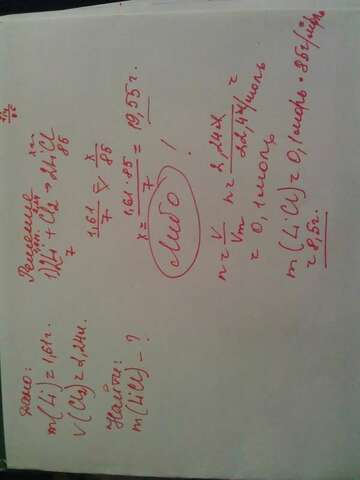 Дано:
m(Li)=1,61г.
V(Cl₂)=2,24л.
Найти:
m(LiCl)-?
Решение
1,61г. 2,24л xг.
1) 2Li + Cl₂ → 2LiCl
7 85
1,61/7 = x/85
x = 1,61·85/7 = 19,55г.
Либо !
n = V/Vm n = 2,24л/22,4л/моль =
= 0,1моль
m(LiCl) = 0,1моль · 85г/моль
= 8,5г.